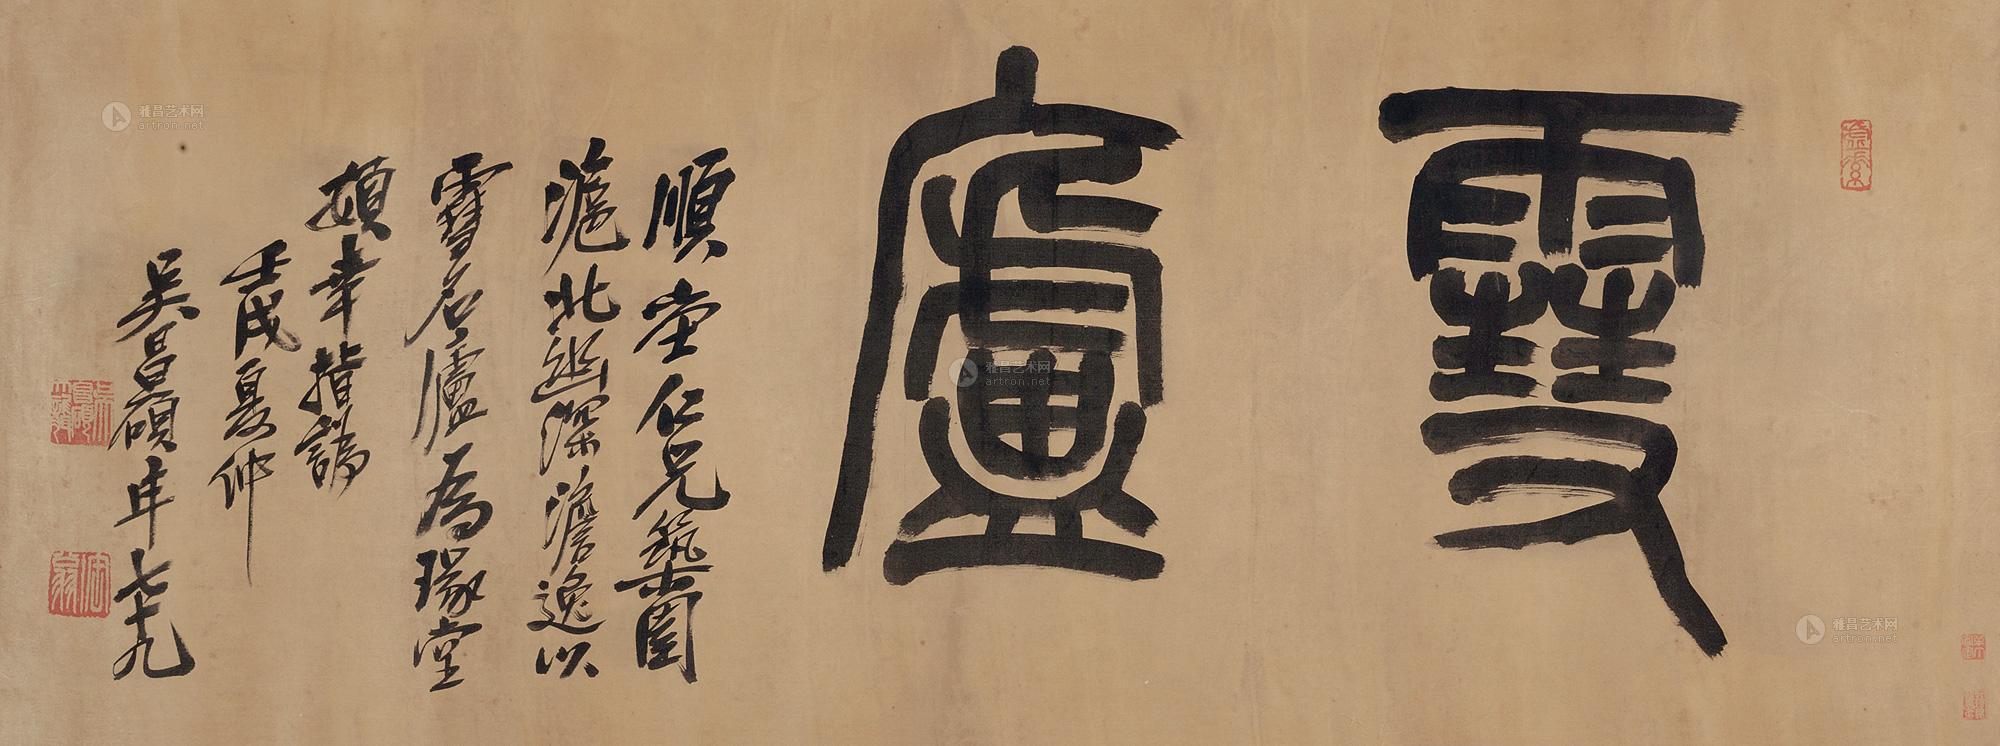 雪盧
順堂仁兄築園
滬北幽深澹逸以
雪名廬為瑑堂
額幸指謫
壬戌夏仲
吳昌碩年七十九
雅昌艺术网
artron.net
雅昌艺术网
artron.net
雅昌艺术网
artron.net